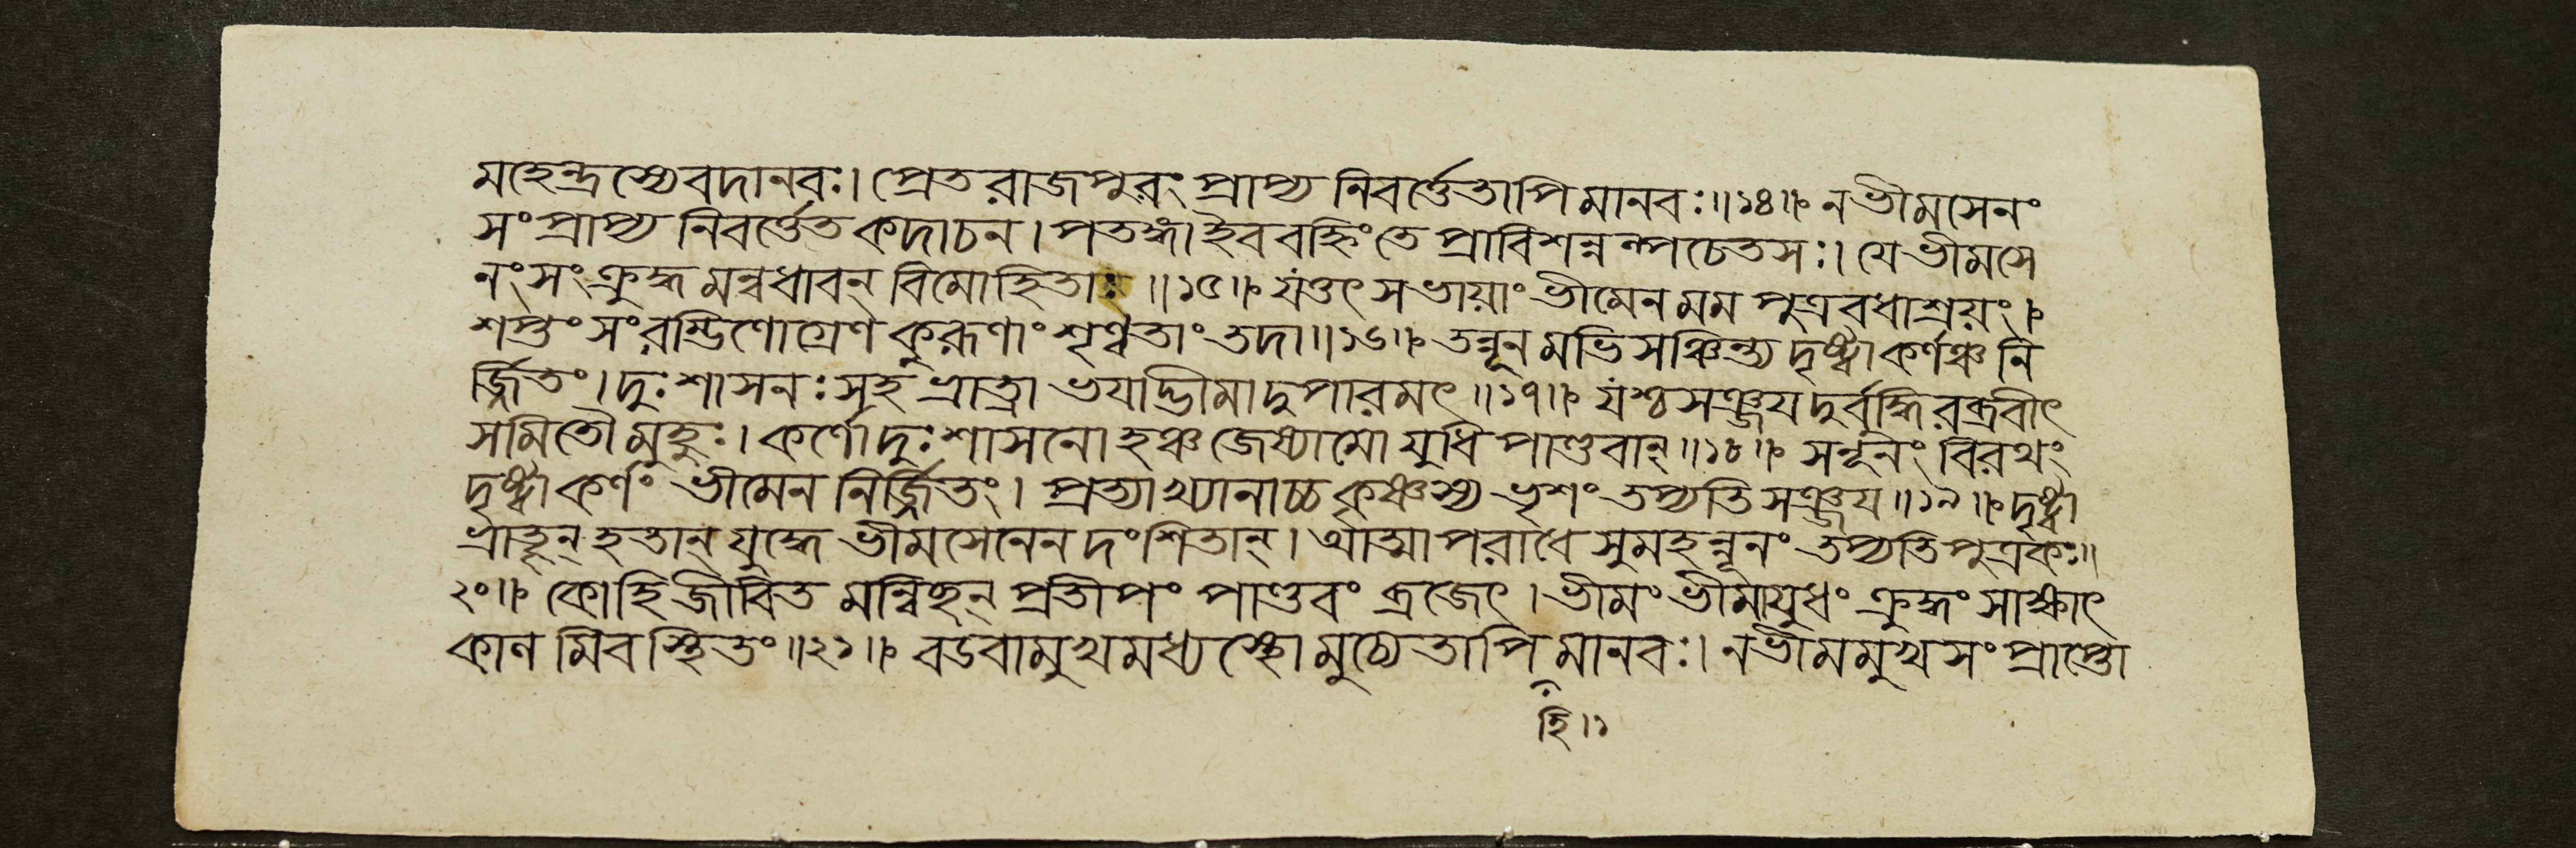 মহেন্দ্রস্যেবদানবঃ। প্রেতরাজপুরং প্রাপ্য নিবর্ত্তেতাপিমানবঃ॥১৪॥ নভীমসেনং
সংপ্রাপ্য নিবর্ত্তেত কদাচন। পতঙ্গা ইব বহ্নিংতে প্রাবিশন্নল্পচেতসঃ। যে ভীমসে
নং সংক্রুদ্ধমন্বধাবন্ বিমোহিতাঃ॥১৫॥ যত্তৎ সভায়াং ভীমেন মম পুত্রবধাশ্রয়ং।
শপ্তং সংরম্ভিণোগ্রেণ কুরূণাং শৃণ্বতাং তদা॥১৬॥ তন্নূনমভিসঞ্চিন্ত্য দৃষ্ট্বা কর্ণঞ্চ নি
র্জ্জিতং। দুঃশাসনঃ সহ ভ্রাত্রা ভয়াদ্ভীমাদুপারমৎ॥১৭॥ যশ্চ সঞ্জয় দুর্বুদ্ধিরব্রবীৎ
সমিতৌ মুহুঃ। কর্ণোদুঃশাসনোহঞ্চ জেষ্যামো যুধি পাণ্ডবান্॥১৮॥ সনূনং বিরথং
দৃষ্ট্বা কর্ণং ভীমেন নির্জ্জিতং। প্রত্যাখ্যানাচ্চ কৃষ্ণস্য ভৃশং তপ্যতি সঞ্জয়॥১৯॥ দৃষ্ট্বা
ভ্রাতৄন্ হতান্ যুদ্ধে ভীমসেনেন দংশিতান্। আত্মাপরাধে সুমহন্নূনং তপ্যতি পুত্রকঃ॥
২০॥ কোহি জীবিতমন্বিচ্ছন্ প্রতীপং পাণ্ডবং ব্রজেৎ। ভীমং ভীমায়ুধং ক্রুদ্ধং সাক্ষাৎ
কালমিব স্থিতং॥২১॥ বডবামুখমধ্যস্থো মুচ্যেতাপি মানবঃ। নভীমমুখসংপ্রাপ্তো
হি।১